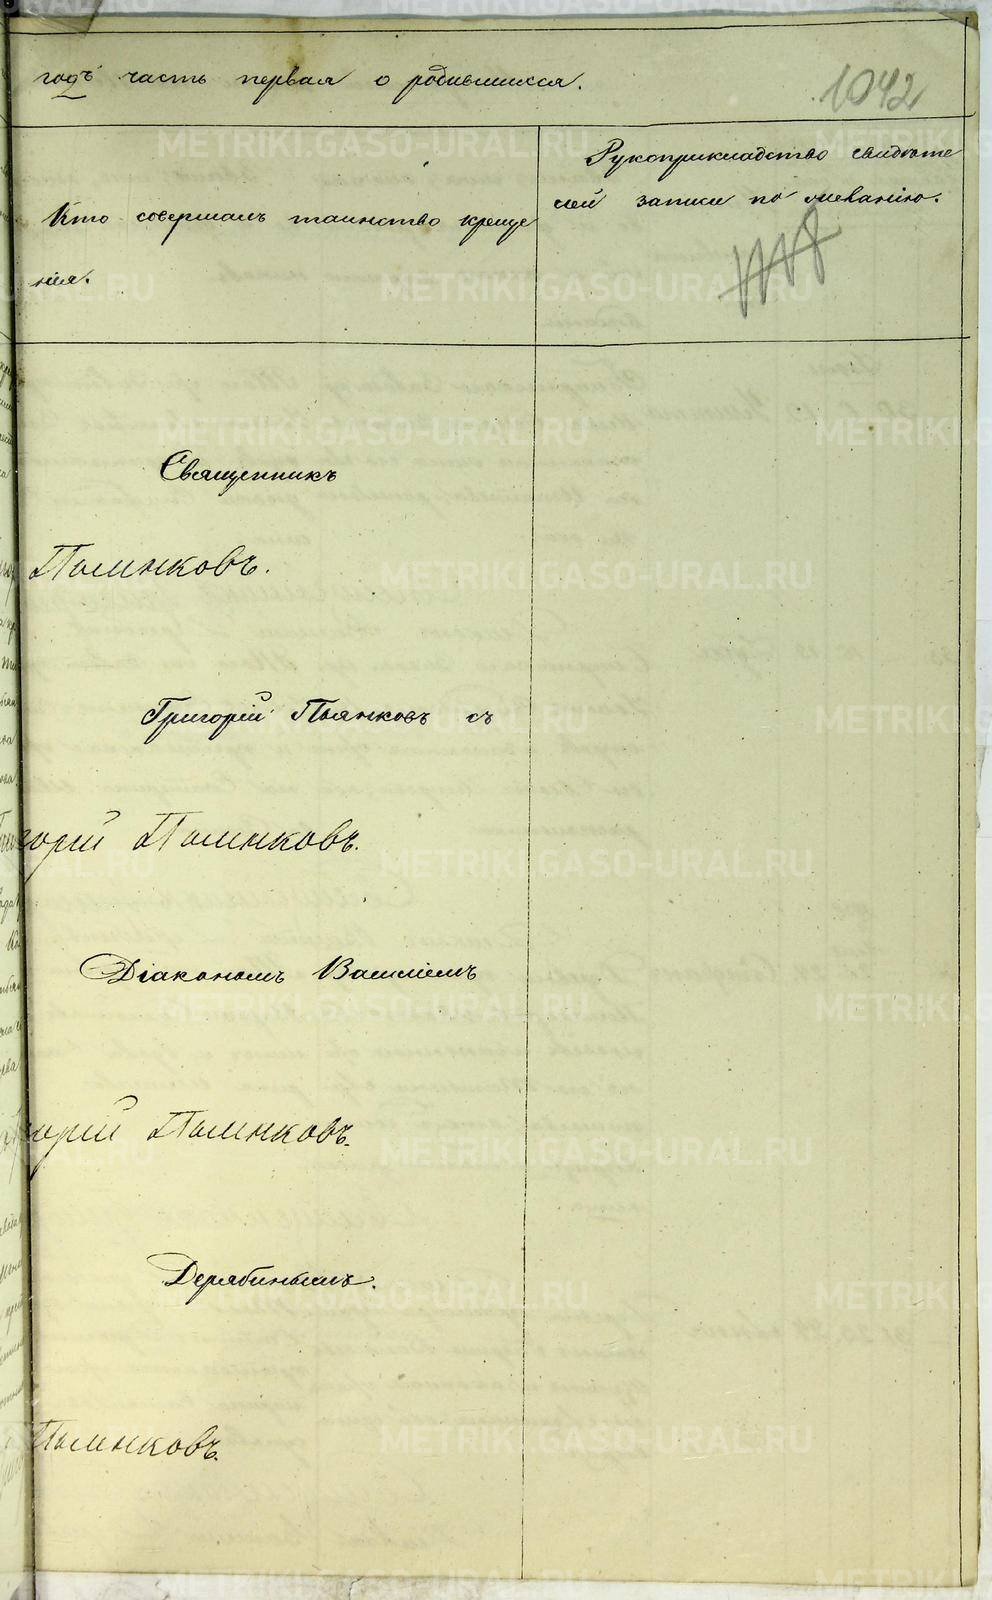 годъ часть первая о родившихся.
1042
Кто совершалъ таинство креще
нія.
Рукоприкладство свидѣте
лей записи по желанію.
Священникъ
Пьянковъ.
Григорій Пьянковъ съ
горій Пьянковъ.
Діакономъ Василіемъ
горій Пьянковъ.
Дерябинымъ.
Пьянковъ.
METRIKI.GASO-URAL.RU